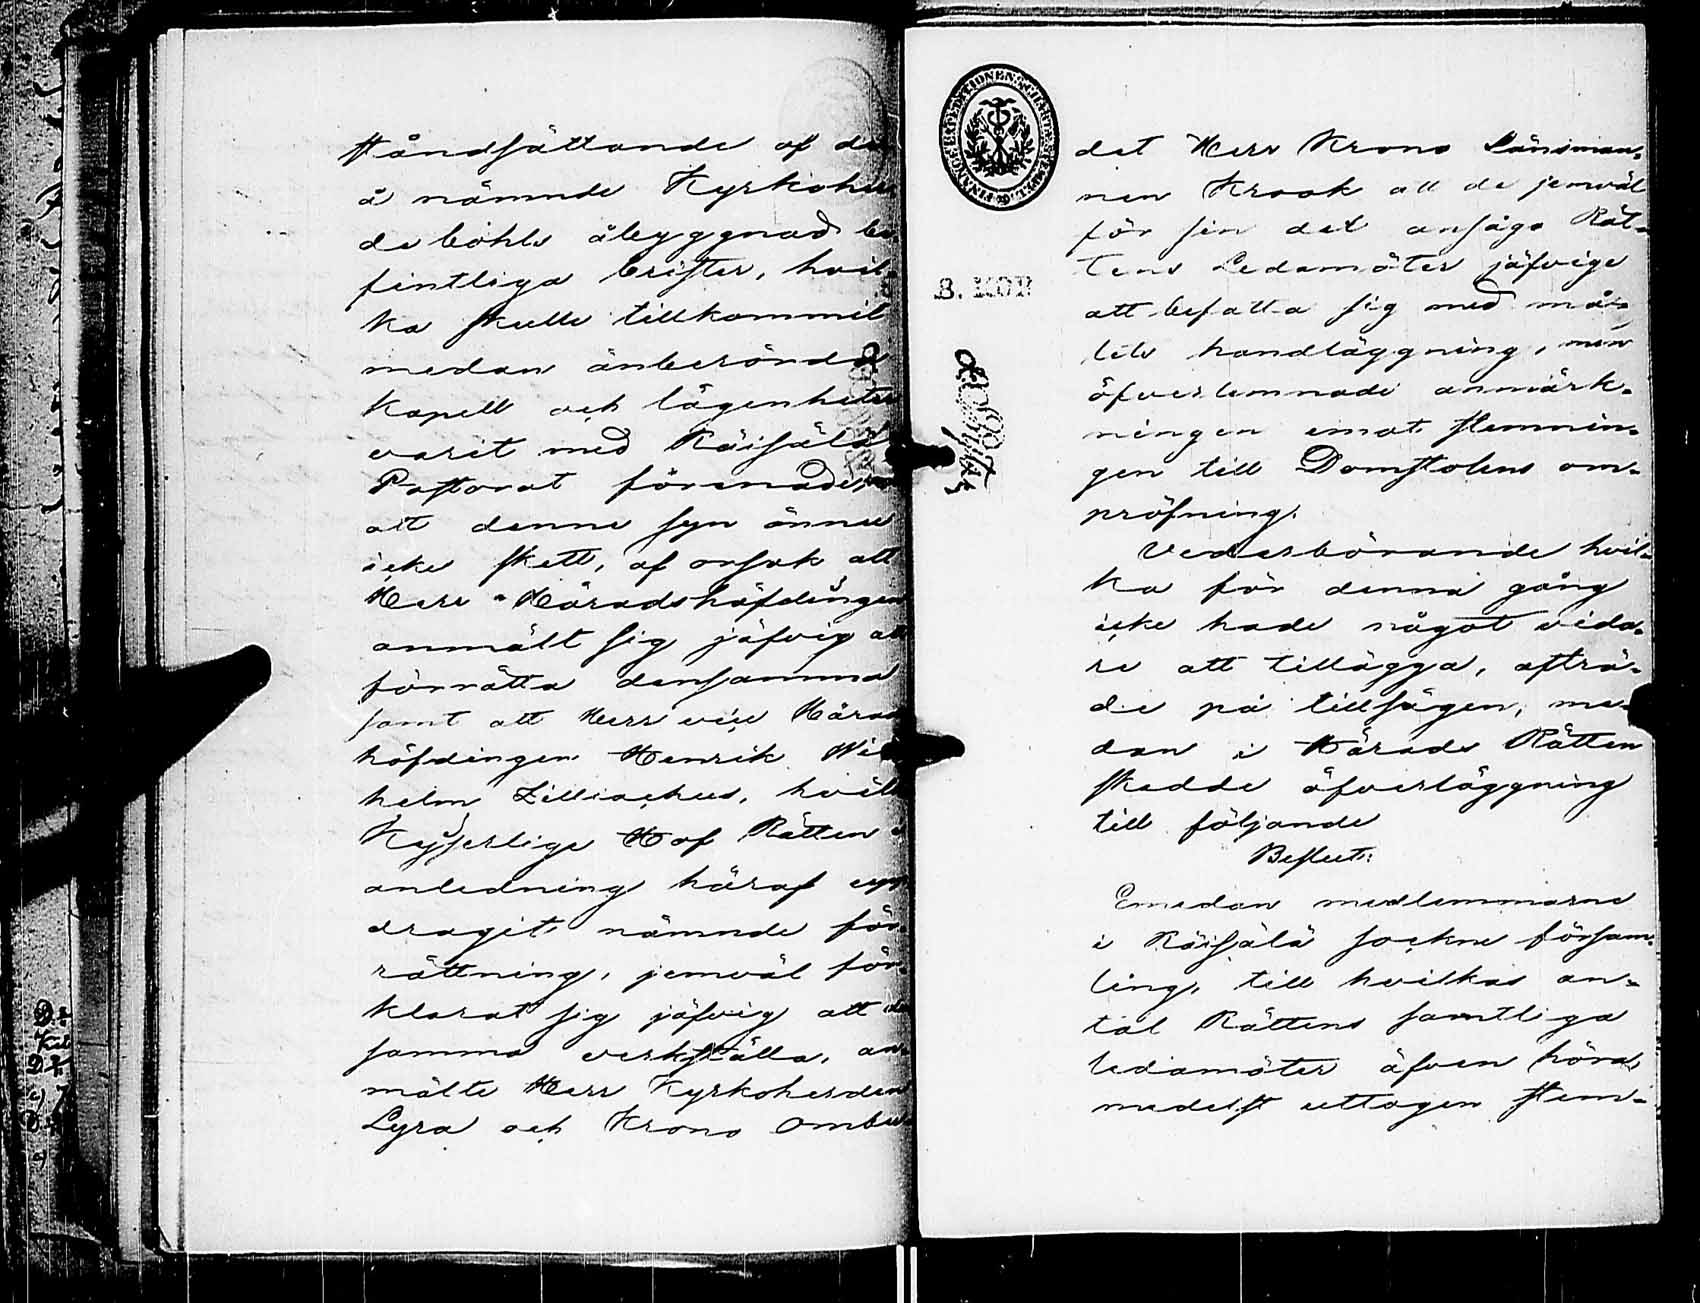 ståndsättande af de
å nämnde Kyrkoher
de bohls åbyggnad be
fintliga brister, hvil-
ka skulle tillkommit
medan ånberörda
Kapell och lägenheter
varit med Räisälä
Pastorat förenade,
att denne syn ännu
icke skett, af orsak att
Herr Häradshöfdingen
anmält sig jäfvig att
förrätta densamma
samt att Herr vice Härads
höfdingen Henrik Wil
helm Lilliaehus, hvilk
Kejserliga Hof Rätten i
anledning häraf upp
dragit nämnde för-
rättning, jemväl för-
klarat sig jäfvig att den
samma verkställa, an-
mälte Herr Kyrkoherden
Lyra och Krono ombu-
det Herr Krono Länsman-
nen Krook att de jemväl
för sin del ansågo Rät-
tens Ledamöter jäfvige
att befatta sig med må-
lets handläggning, men
öfverlemnade anmärk-
ningen emot stemnin-
gen till Domstolens om-
pröfning.
Vederbörande hvil-
ka för denna gång
icke hade något vida-
re att tillägga, afträ-
de på tillsägen, me-
dan i Härads Rätten
skedde öfverläggning
till följande
Beslut:
Emedan medlemmarne
i Räisälä sockne försam-
ling, till hvilkas an-
tal Rättens samtliga
ledamöter äfven höra,
medelst uttagen stem-